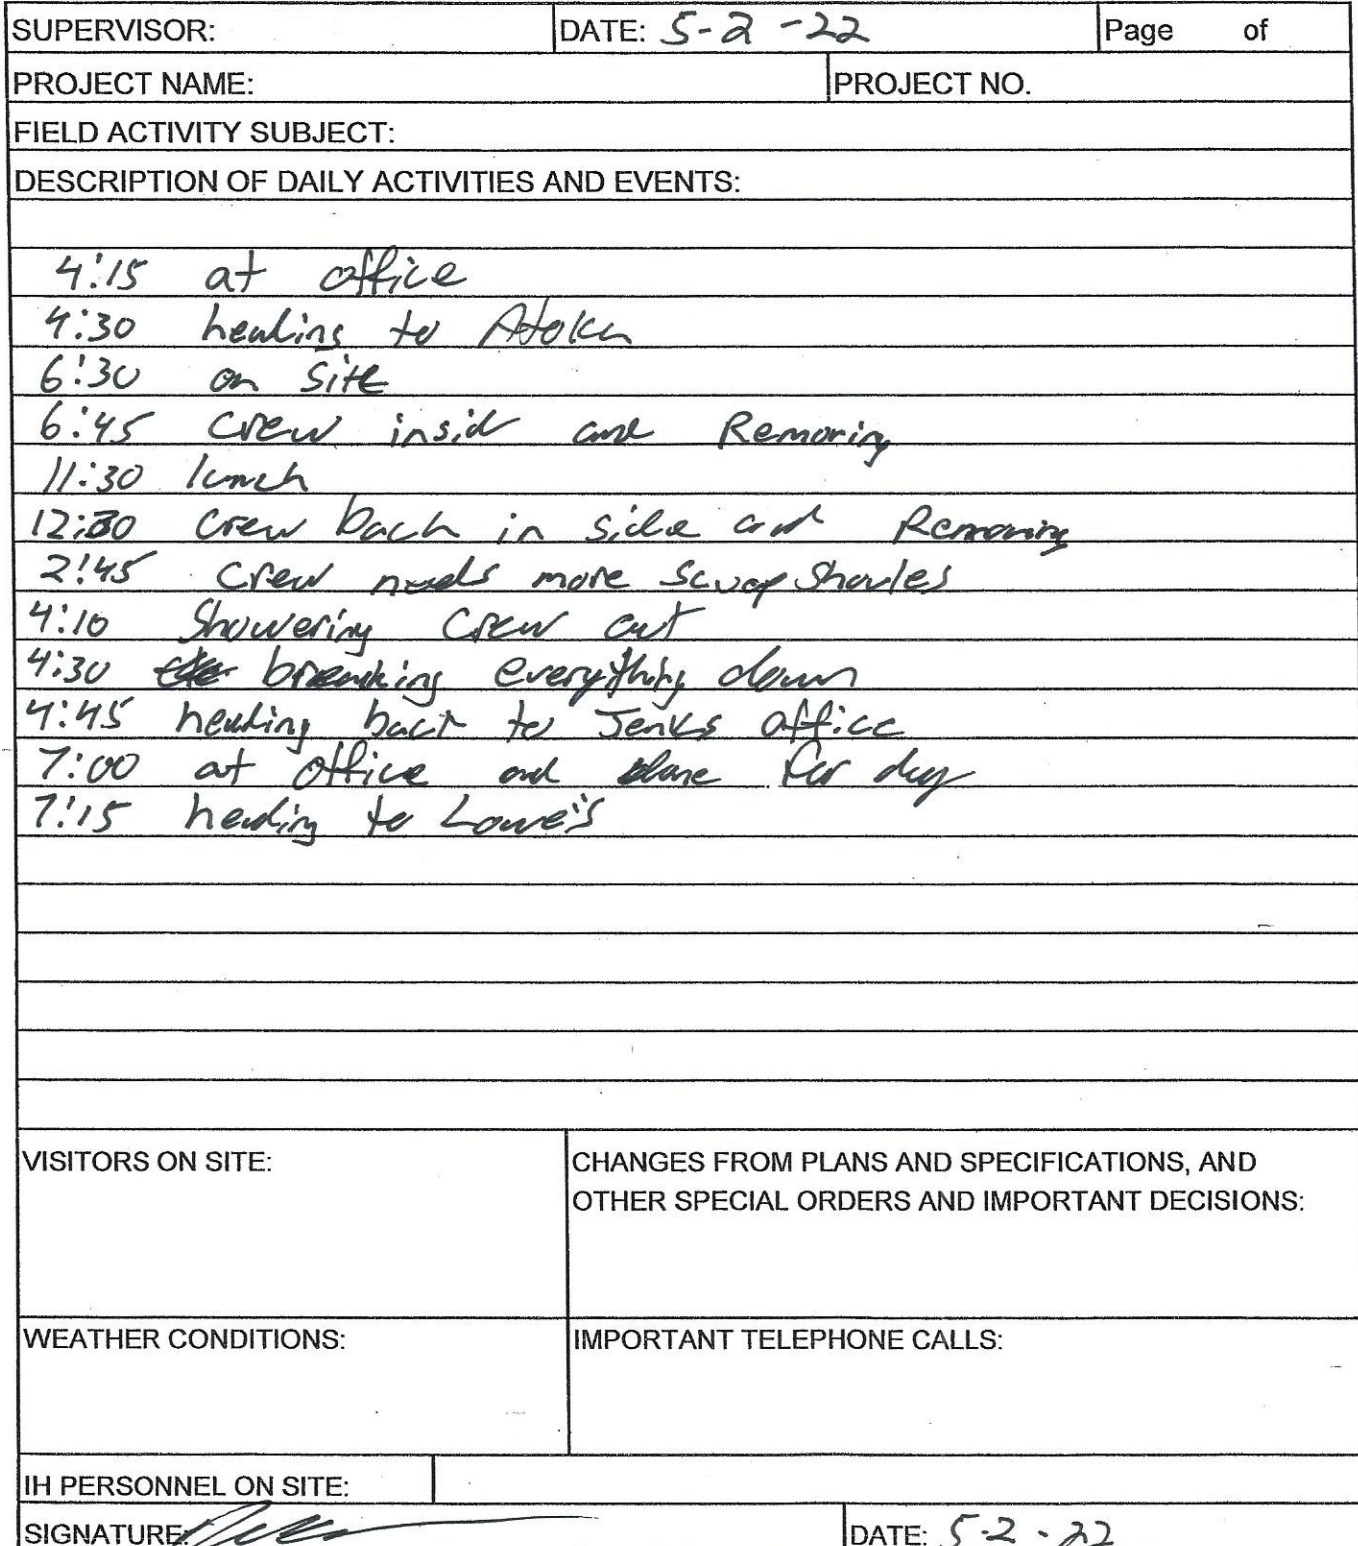 SUPERVISOR: DATE: 5-2-22 Page of
PROJECT NAME: PROJECT NO.
FIELD ACTIVITY SUBJECT:
DESCRIPTION OF DAILY ACTIVITIES AND EVENTS:
4:15 at office
4:30 heading to Atoka
6:30 on site
6:45 Crew insid and Removing
11:30 lunch
12:30 Crew back in side and Removing
2:45 Crew needs more scoop shovles
4:10 Showering Crew out
4:30 breaking everything down
4:45 heading back to Jenks office
7:00 at office and done for day
7:15 heading to Lowe's
VISITORS ON SITE:
CHANGES FROM PLANS AND SPECIFICATIONS, AND
OTHER SPECIAL ORDERS AND IMPORTANT DECISIONS:
WEATHER CONDITIONS: IMPORTANT TELEPHONE CALLS:
IH PERSONNEL ON SITE:
SIGNATURE: DATE: 5-2-22